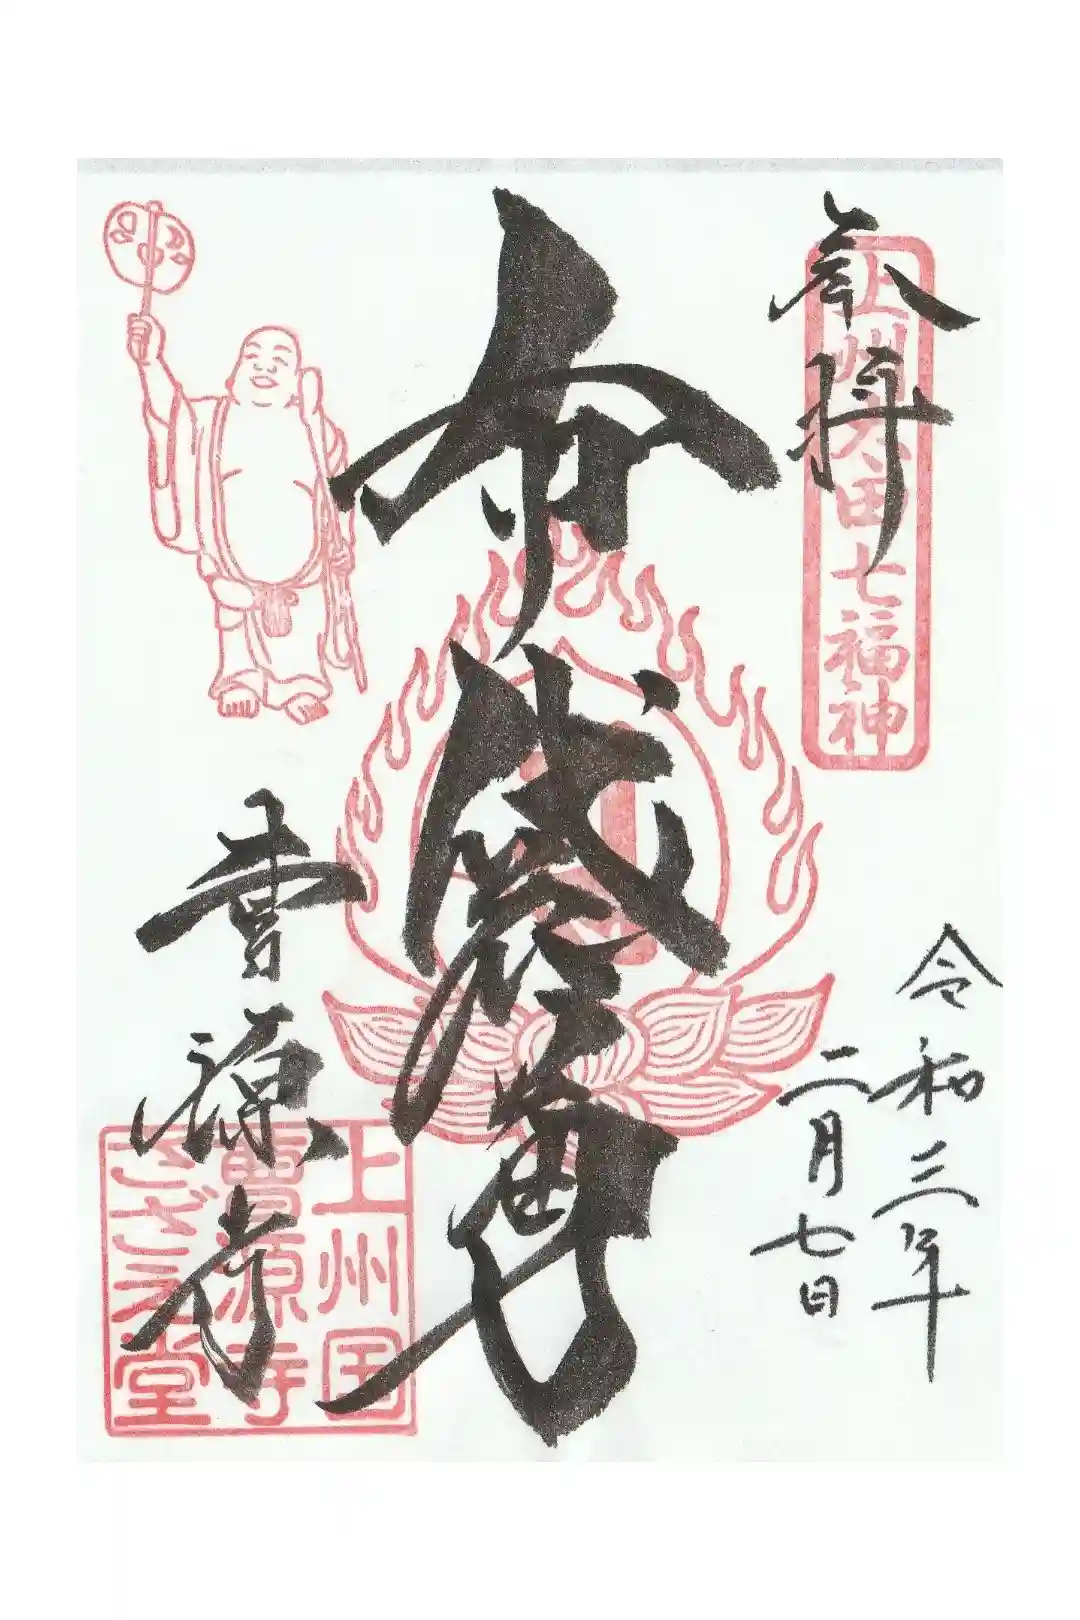 奉拝
上州太田七福神
令和三年
二月七日
布袋尊
曹源寺
上州国
曹源寺
さざえ堂